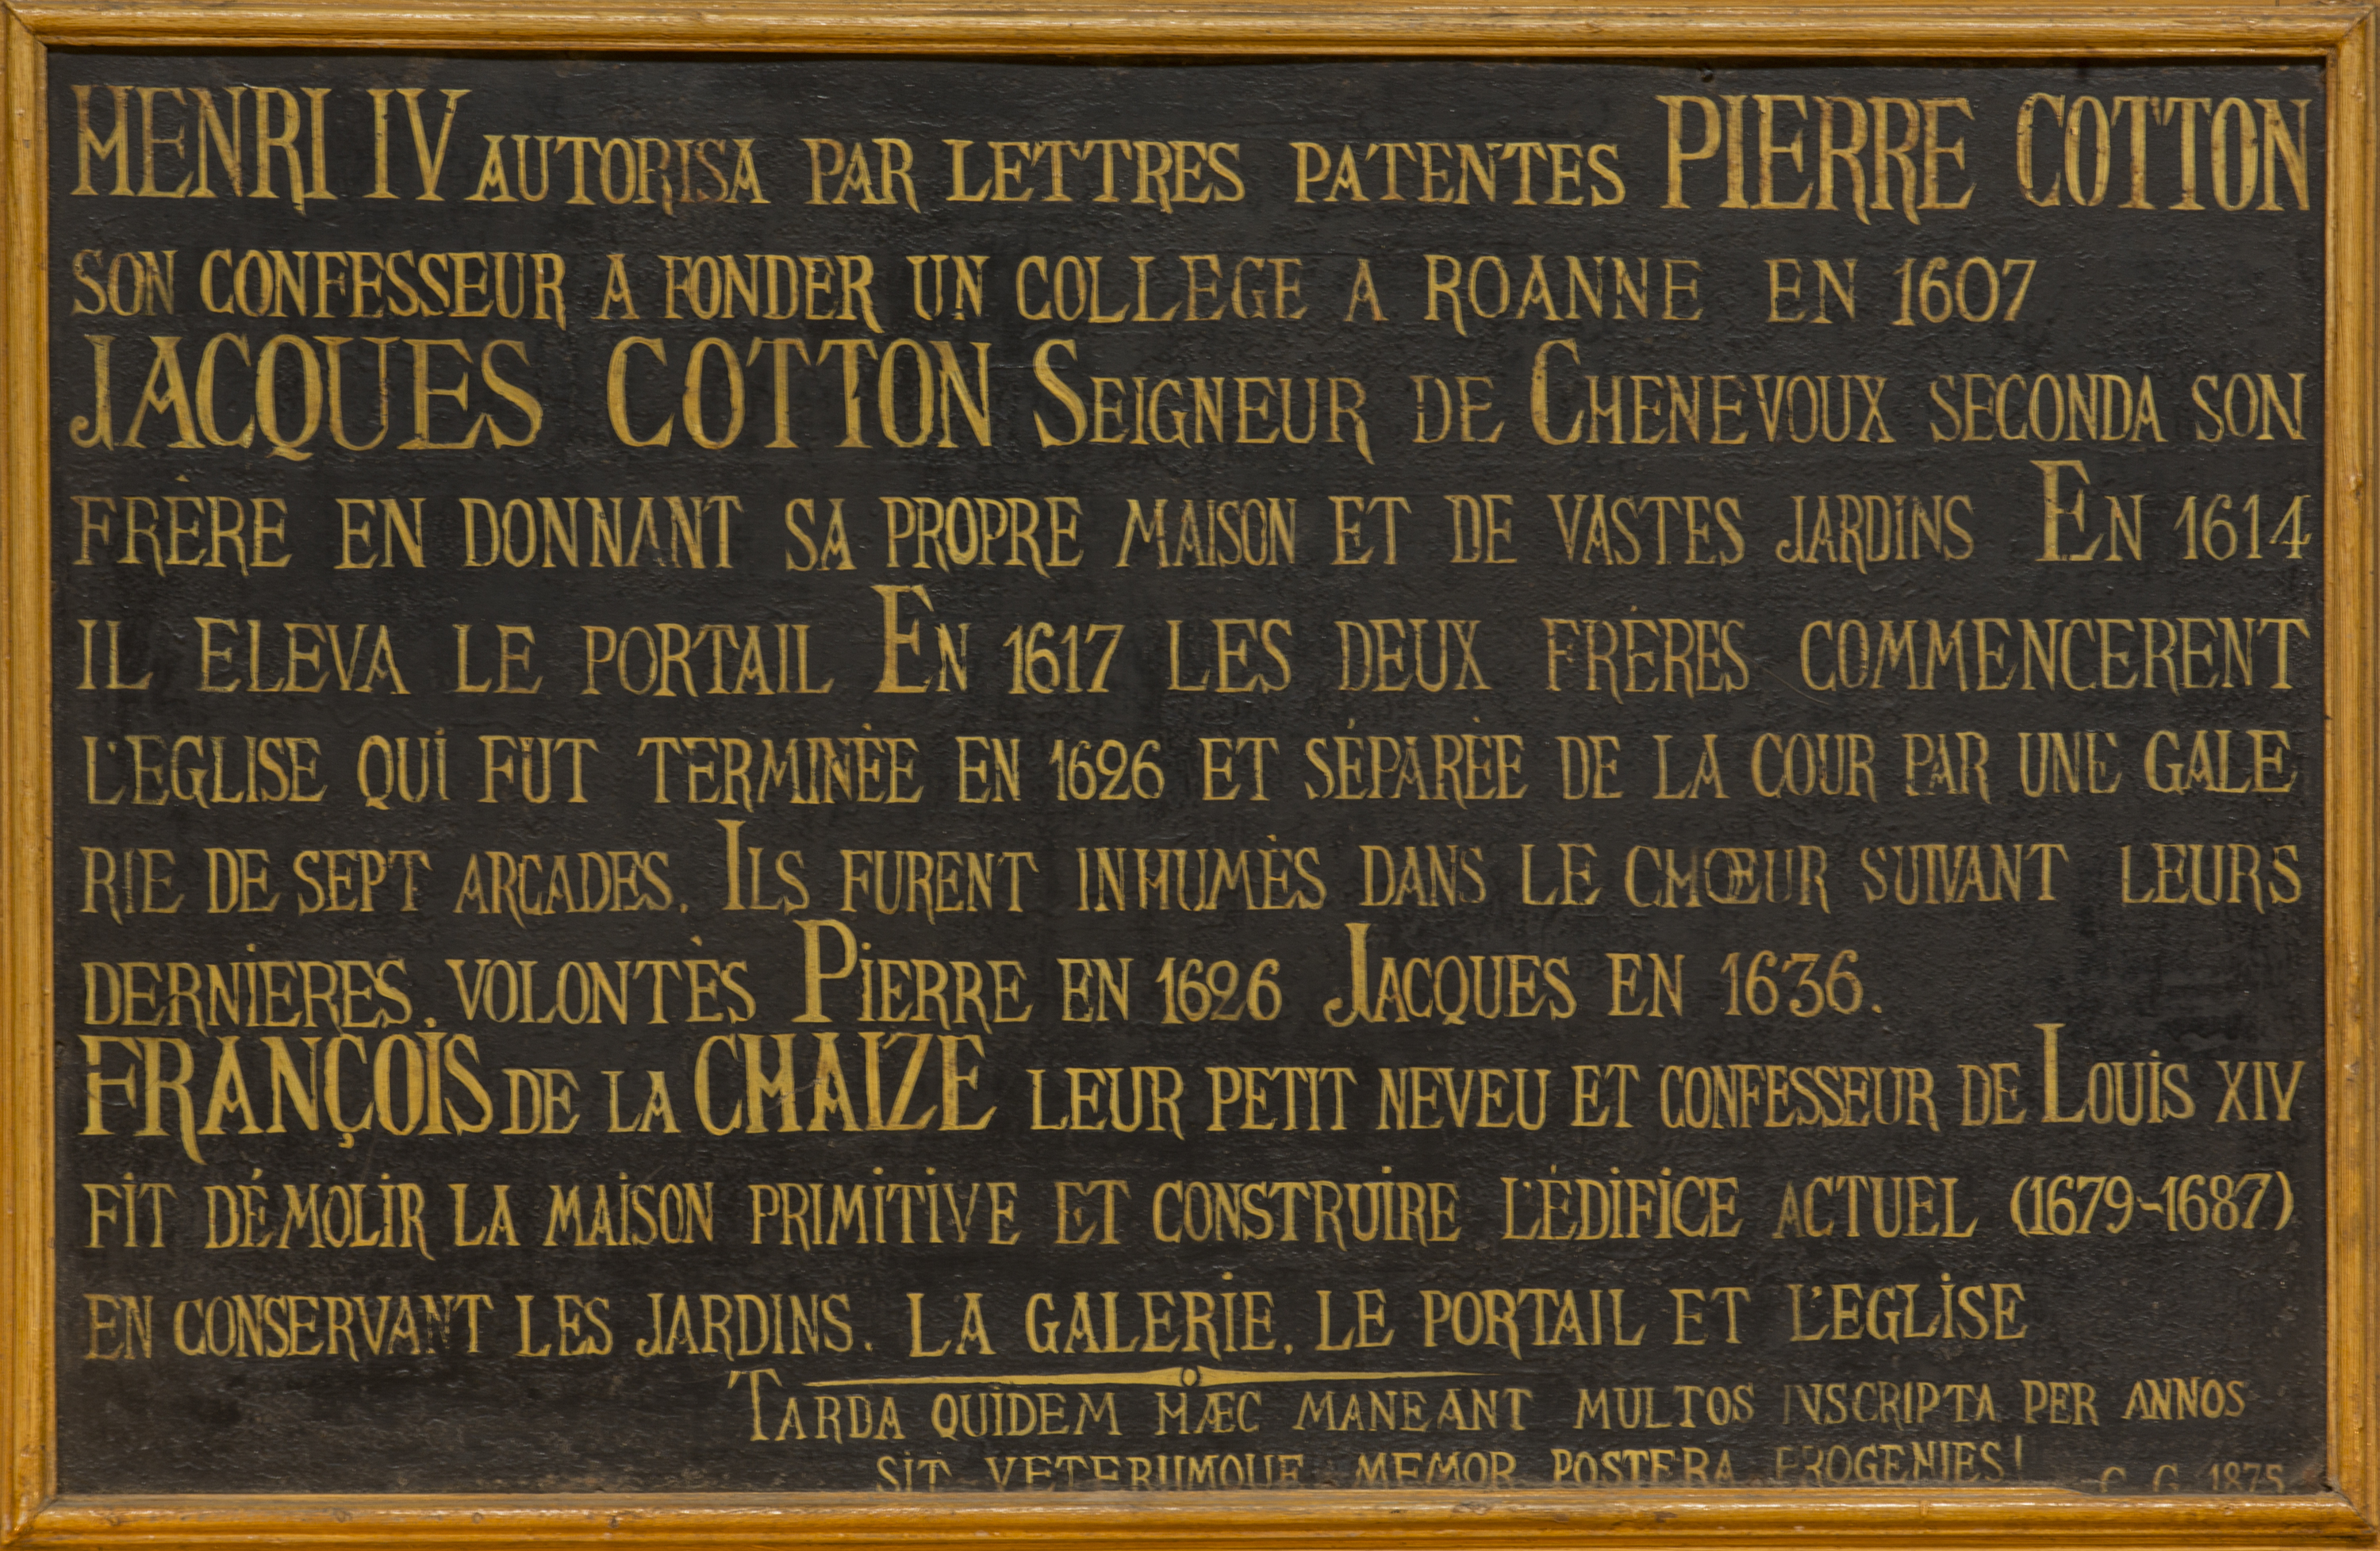 HENRI IV AUTORISA PAR LETTRES PATENTES PIERRE COTTON
SON CONFESSEUR A FONDER UN COLLEGE A ROANNE EN 1607
JACQUES COTTON SEIGNEUR DE CHENEVOUX SECONDA SON
FRÈRE EN DONNANT SA PROPRE MAISON ET DE VASTES JARDINS EN 1614
IL ELEVA LE PORTAIL EN 1617 LES DEUX FRÈRES COMMENCERENT
L'EGLISE QUI FUT TERMINÉE EN 1626 ET SÉPARÉE DE LA COUR PAR UNE GALE
RIE DE SEPT ARCADES. ILS FURENT INHUMÈS DANS LE CHŒUR SUIVANT LEURS
DERNIERES VOLONTÈS PIERRE EN 1626 JACQUES EN 1636.
FRANÇOIS DE LA CHAIZE LEUR PETIT NEVEU ET CONFESSEUR DE LOUIS XIV
FIT DÉMOLIR LA MAISON PRIMITIVE ET CONSTRUIRE L'ÉDIFICE ACTUEL (1679-1687)
EN CONSERVANT LES JARDINS. LA GALERIE. LE PORTAIL ET L'EGLISE
TARDA QUIDEM HÆC MANEANT MULTOS INSCRIPTA PER ANNOS
SIT VETERUMQUE MEMOR POSTERA PROGENIES!
C. G. 1875